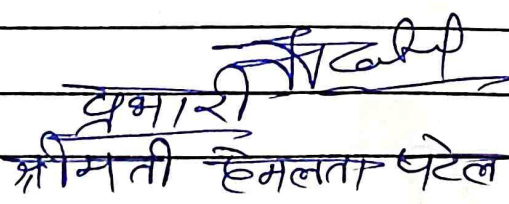 प्रभारी
श्रीमती हेमलता पटेल